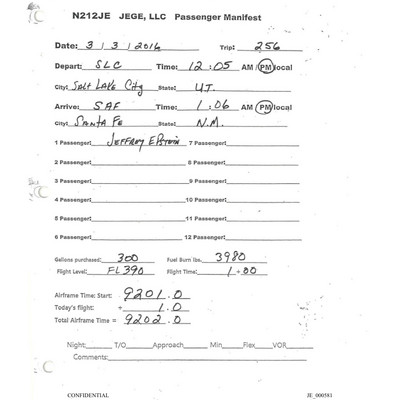 N212JE JEGE, LLC Passenger Manifest
Date: 3 / 3 / 2016 Trip: 256
Depart: SLC Time: 12:05 AM / PM local
City: Salt Lake City State: UT.
Arrive: SAF Time: 1:06 AM / PM local
City: Santa Fe State: N.M.
1 Passenger: Jeffrey Epstein 7 Passenger:
2 Passenger: 8 Passenger:
3 Passenger: 9 Passenger:
4 Passenger: 10 Passenger:
5 Passenger: 11 Passenger:
6 Passenger: 12 Passenger:
Gallons purchased: 300 Fuel Burn lbs. 3980
Flight Level: FL390 Flight Time: 1+00
Airframe Time: Start: 9201.0
Today's flight: + 1.0
Total Airframe Time = 9202.0
Night: T/O Approach Min Flex VOR
Comments:
CONFIDENTIAL JE_000581